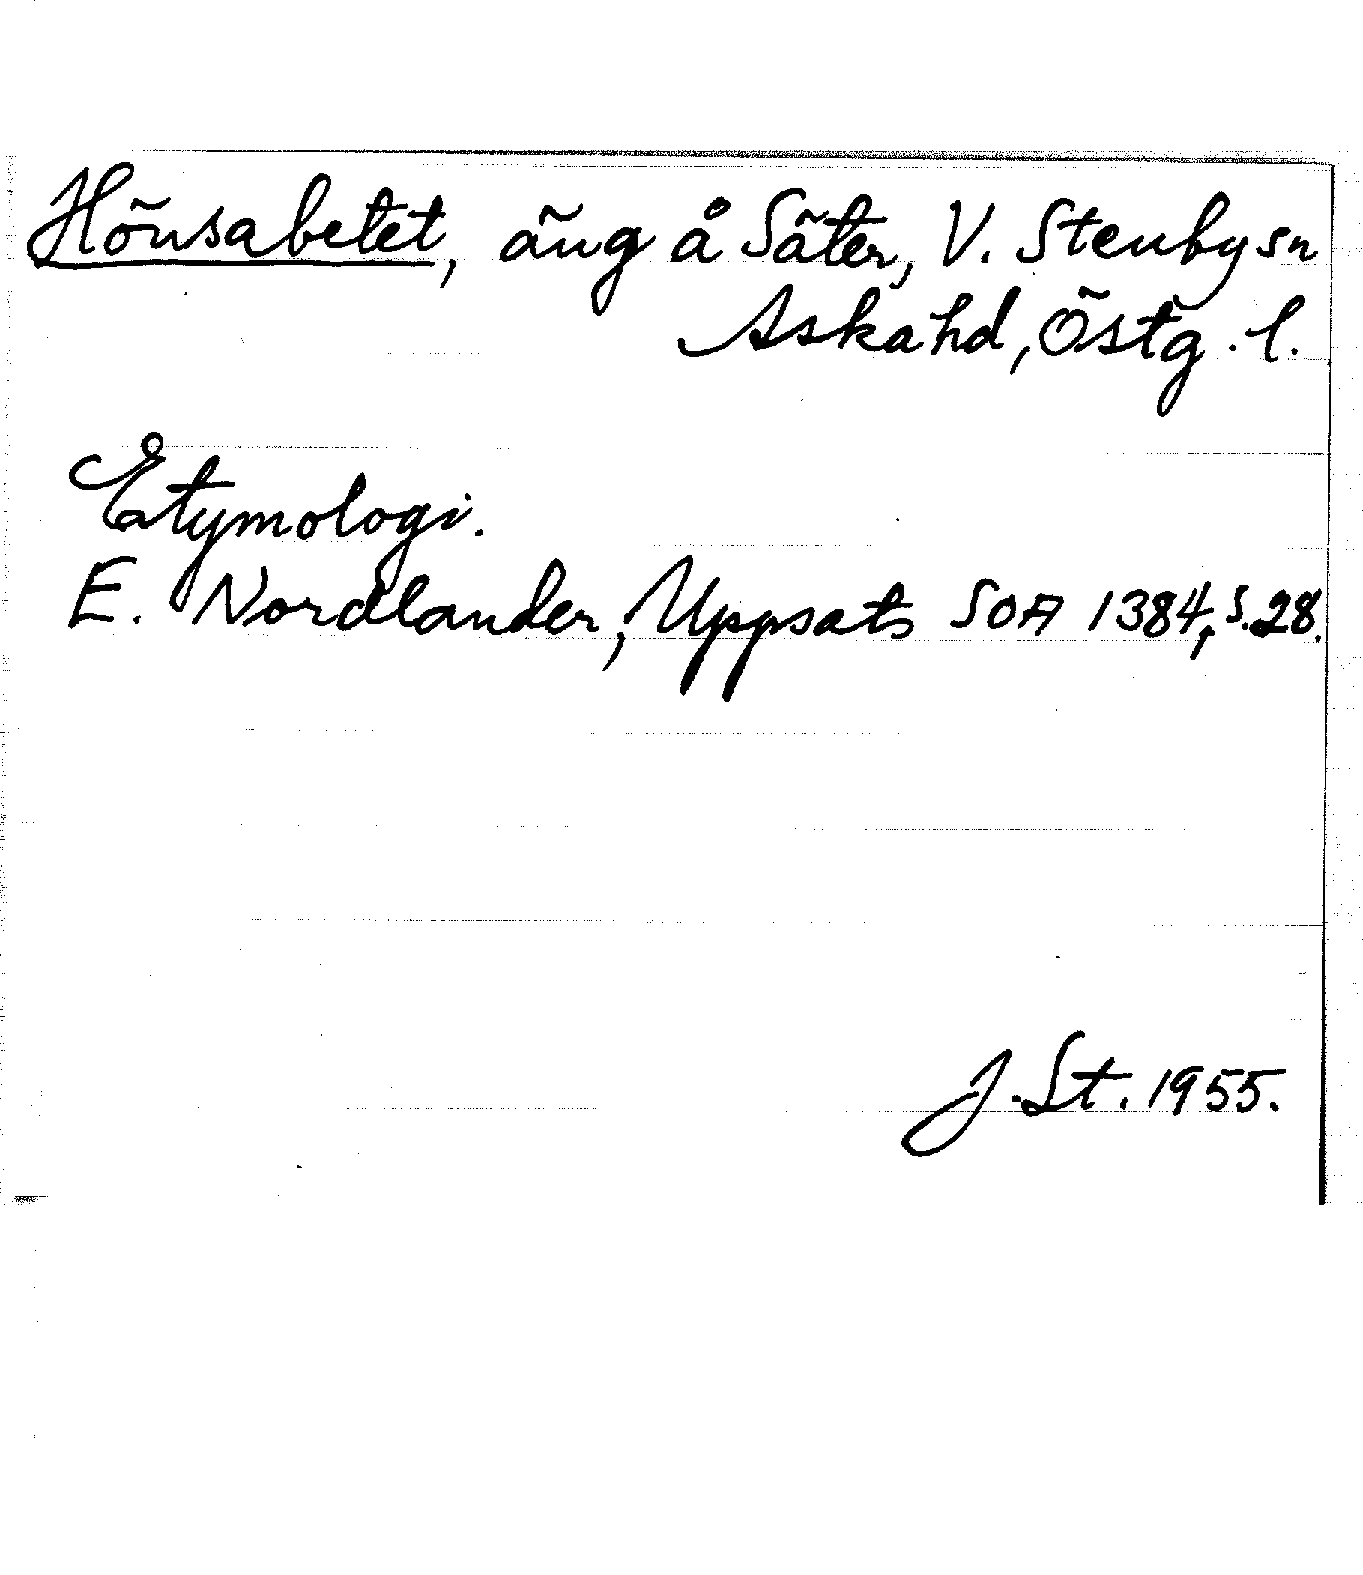 Hönsabetet, äng å Säter, V. Stenby sn
Aska hd, Östg. l.
Etymologi.
E. Nordlander, Uppsats SOA 1384, s. 28.
J. St. 1955.